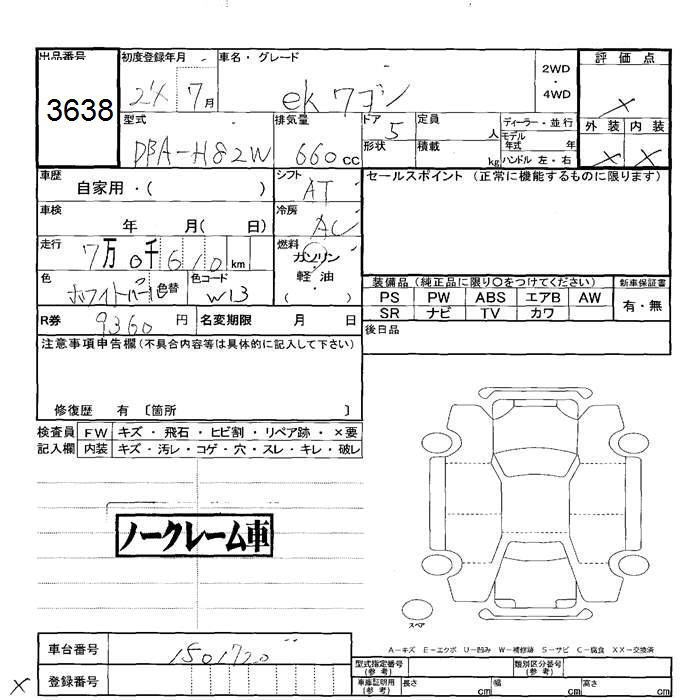 出品番号 初度登録年月 車名・グレード 2WD ・ 4WD 評価点
3638 7月 ekワゴン ×
型式 排気量 ドア 5 定員 人 ディーラー・並行 外装 内装
DBA-H82W 660cc 形状 積載 kg モデル年式 年 ハンドル 左・右 × ×
車歴 自家用・( ) シフト AT セールスポイント (正常に機能するものに限ります)
車検 年 月( 日) 冷房 AC
走行 7万0千610km 燃料 ガソリン・軽油 ( )
色 ホワイトパール 色替 色コード W13 装備品 (純正品に限り○をつけてください) 新車保証書
PS PW ABS エアB AW 有・無
SR ナビ TV カワ
R券 9360円 名変期限 月 日 後日品
注意事項申告欄(不具合内容等は具体的に記入して下さい)
修復歴 有 〔箇所 〕
検査員 FW キズ・飛石・ヒビ割・リペア跡・×要
記入欄 内装 キズ・汚レ・コゲ・穴・スレ・キレ・破レ
ノークレーム車
スペア
A-キズ E-エクボ U-凹み W-補修跡 S-サビ C-腐食 XX-交換済
車台番号 1501720 型式指定番号(参考) 類別区分番号(参考)
× 登録番号 車庫証明用(参考) 長さ cm 幅 cm 高さ cm